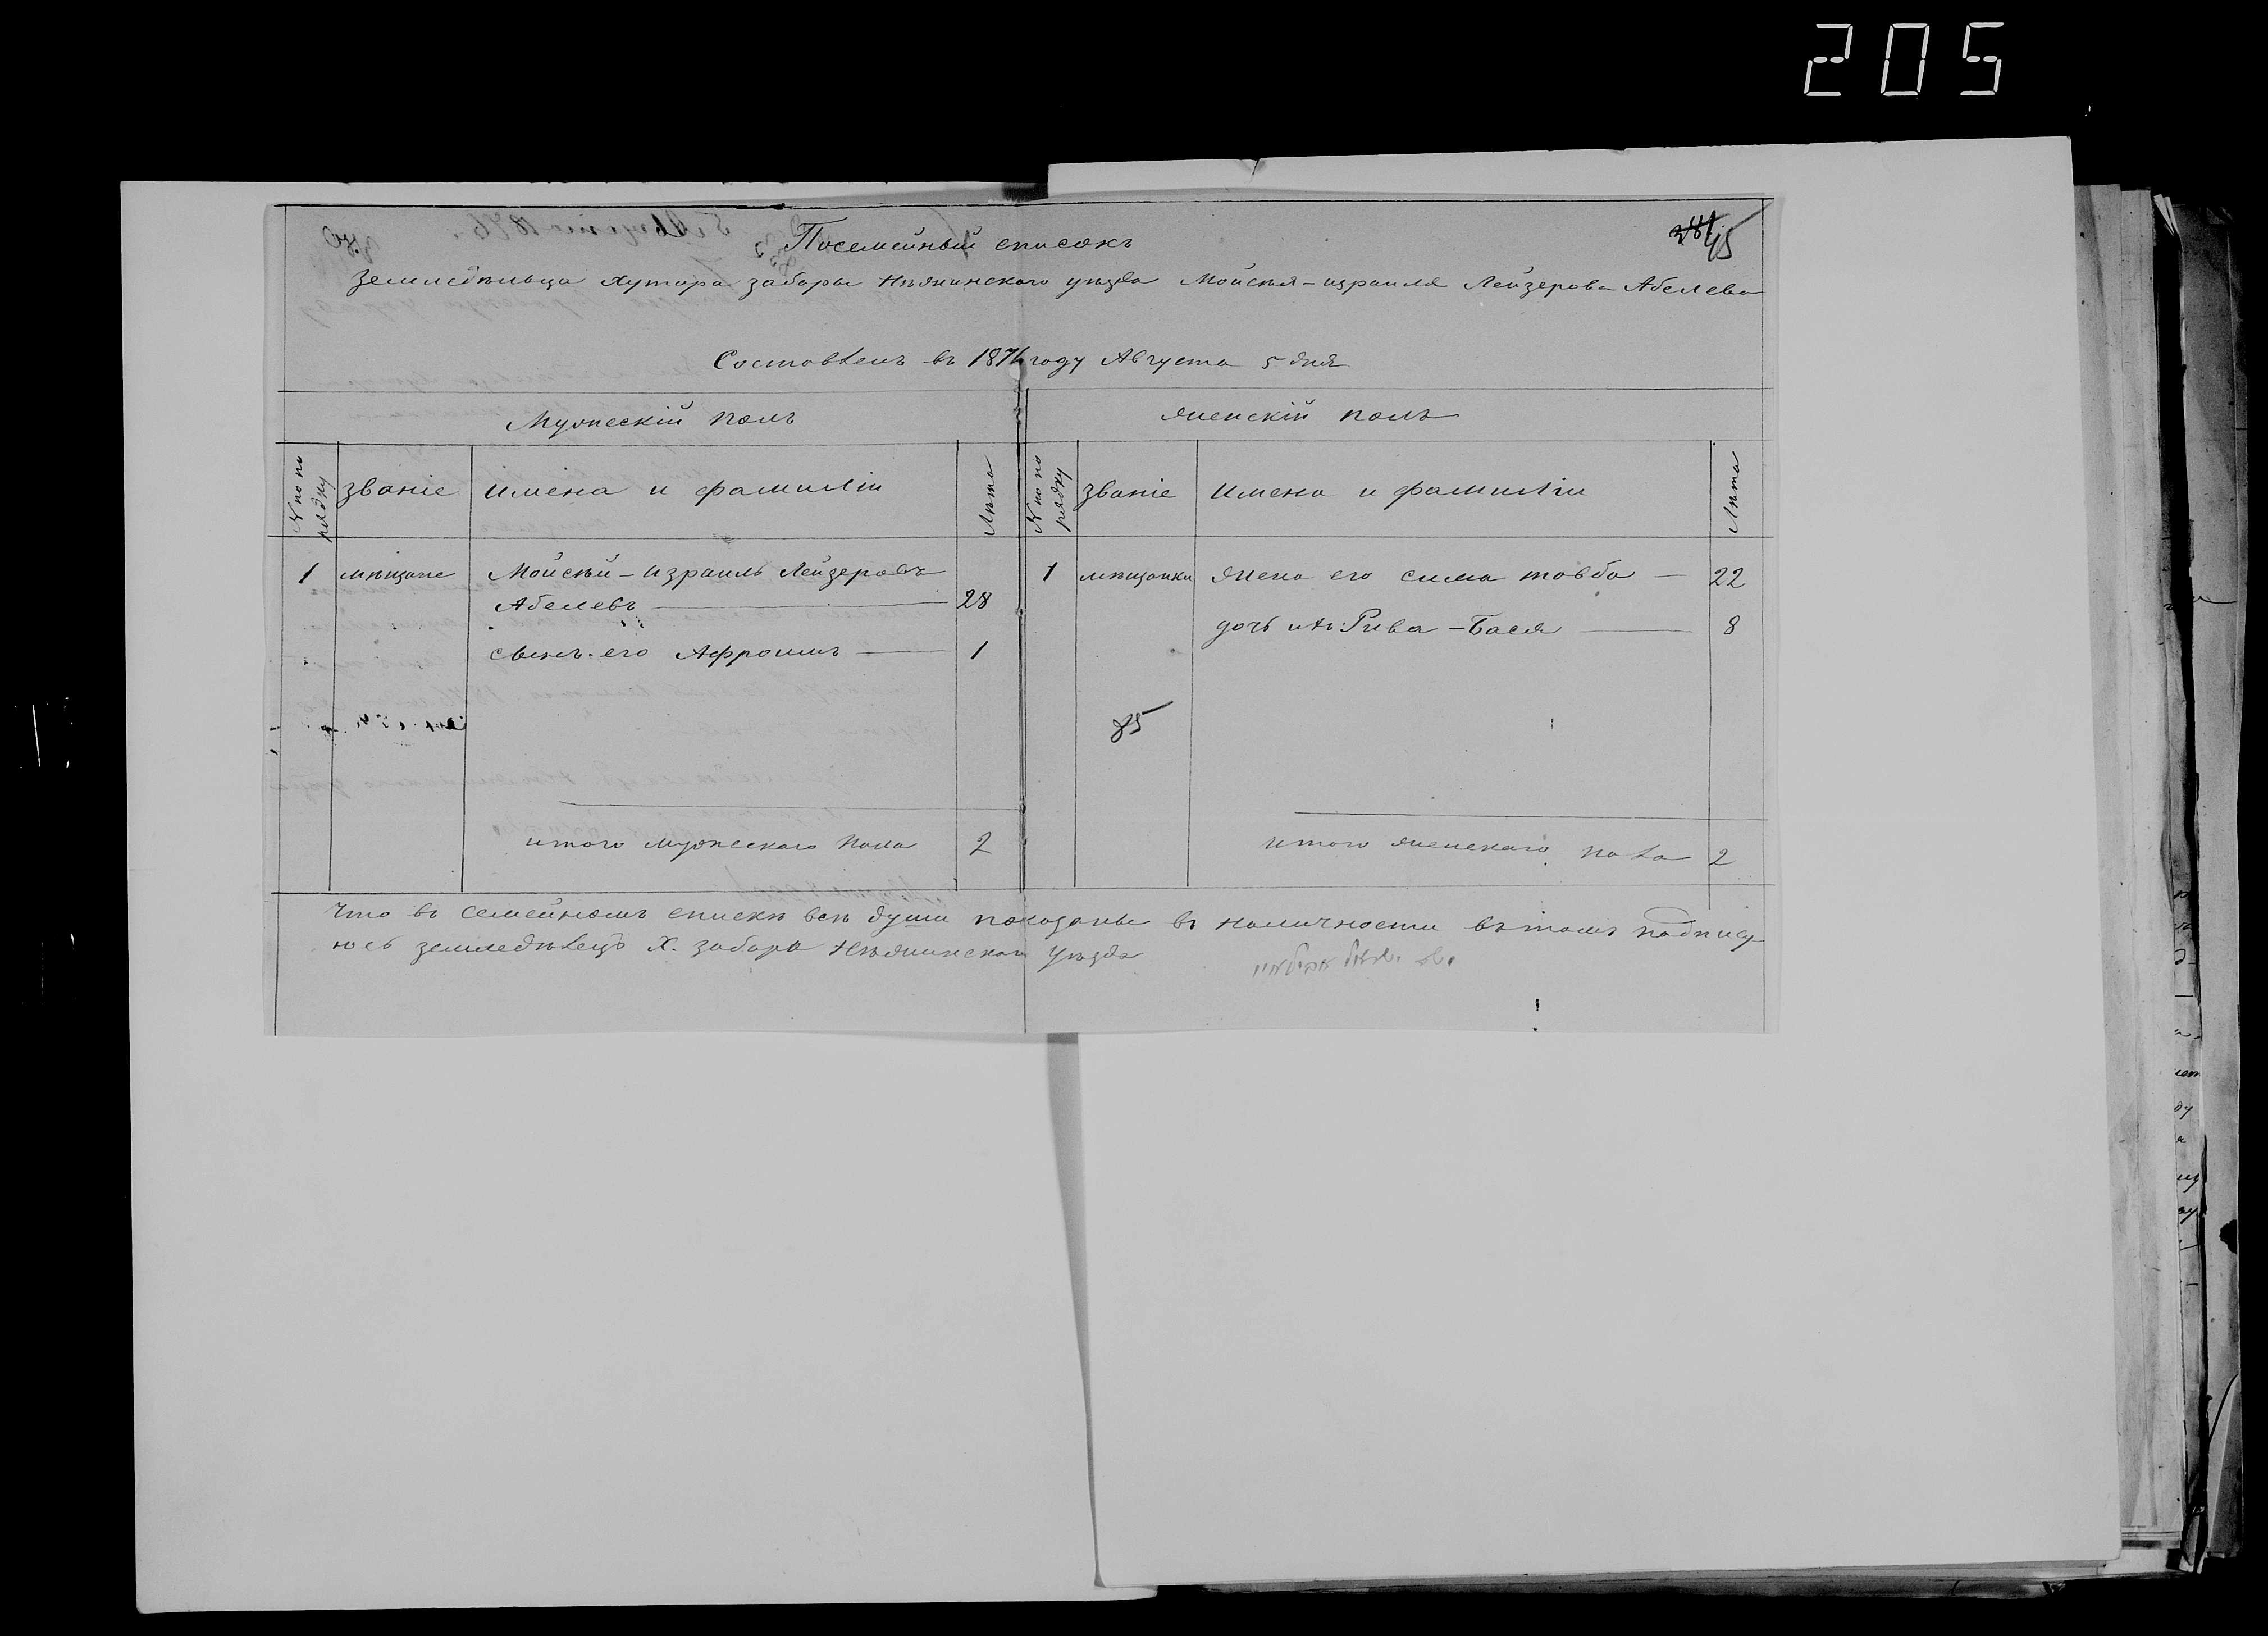 205
Посемейный списокъ
284 45
Земледѣльца хутора забары Нѣжинского уѣзда Мойсея-израиля Лейзерова Абелева
Составленъ въ 1876 году Августа 5 дня
Мужескій полъ Женскій полъ
№ по порядку званіе имена и фамиліи Лѣта № по порядку званіе имена и фамиліи Лѣта
1 мѣщане Мойсѣй-израиль Лейзеровъ 1 мѣщанки жена его сима товба — 22
Абелевъ — 28
дочь ихъ Рива-Бася — 8
сынъ его Афроимъ — 1
85
итого мужескаго пола 2 итого женскаго пола 2
Что въ семейномъ спискѣ всѣ души показаны въ наличности въ томъ подпису
юсь земледѣлецъ Х. забара Нѣжинскаго уѣзда